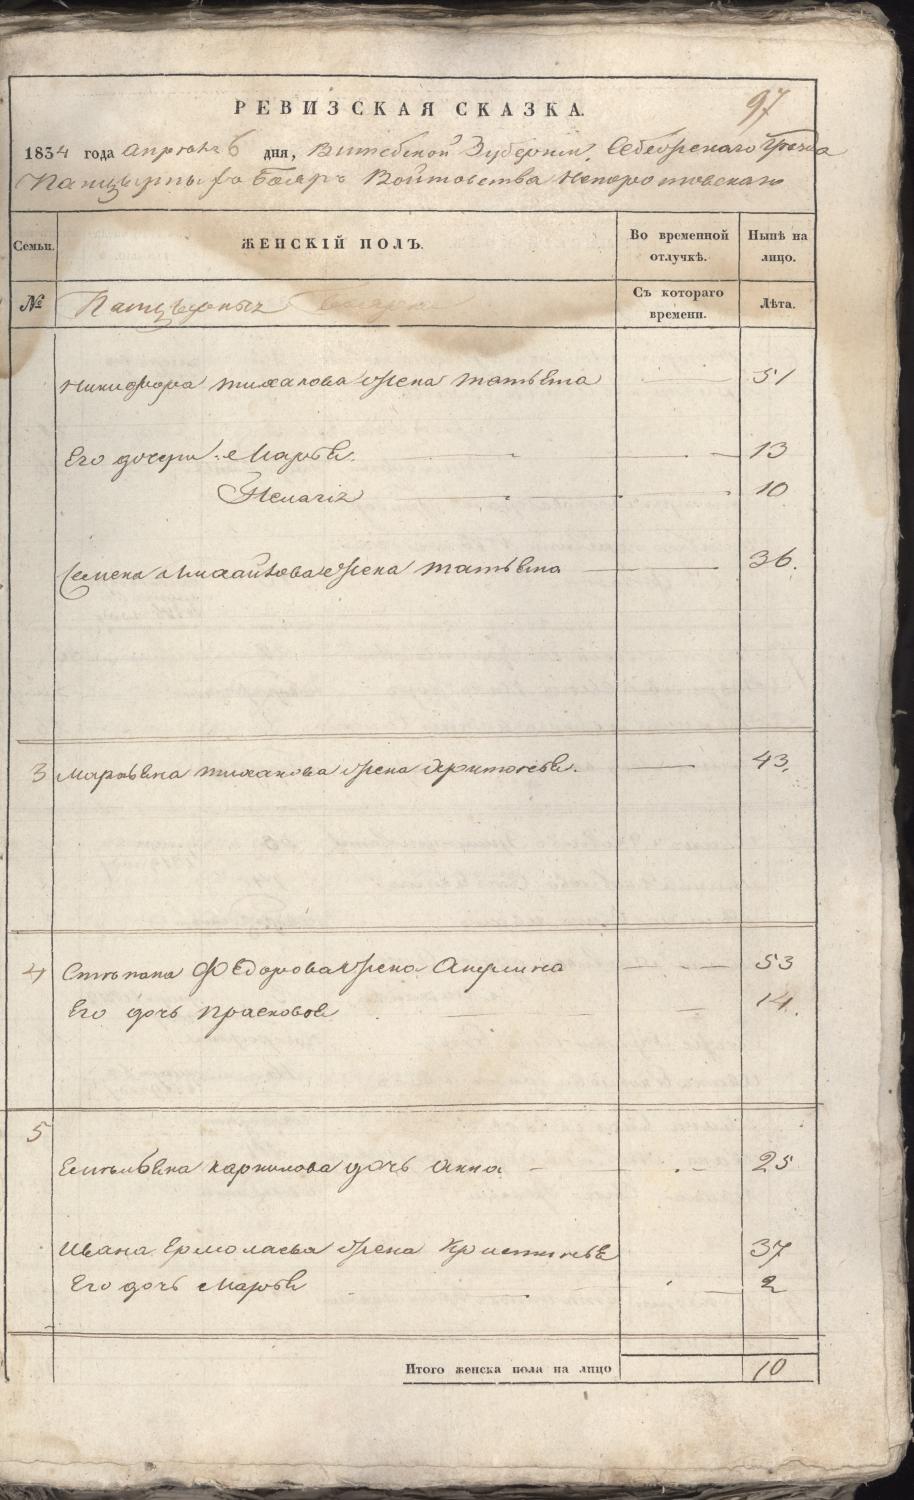 97
РЕВИЗСКАЯ СКАЗКА.
1834 года апреля 6 дня, Витебской Губернии, Себежского Уезда
Панцырныхъ Бояръ Войтовства Непоротовскаго
Семьи. ЖЕНСКІЙ ПОЛЪ. Во временной отлучкѣ. Нынѣ на лицо.
№ Панцырныхъ Бояръ Съ котораго времени. Лѣта.
Никифора Михалова жена Татьяна 51
Его дочери. Марья. 13
Пелагія 10
Семена Михайлова жена Татьяна 36.
3 Мартьяна Михалова жена Харитонья. 43.
4 Степана Федорова жена Акулина 53
Его дочь Прасковья 14.
5
Емельяна Карпилова дочь Анна 25
Ивана Ермолаева жена Кристинья 37
Его дочь Марья 2
Итого женска пола на лицо 10